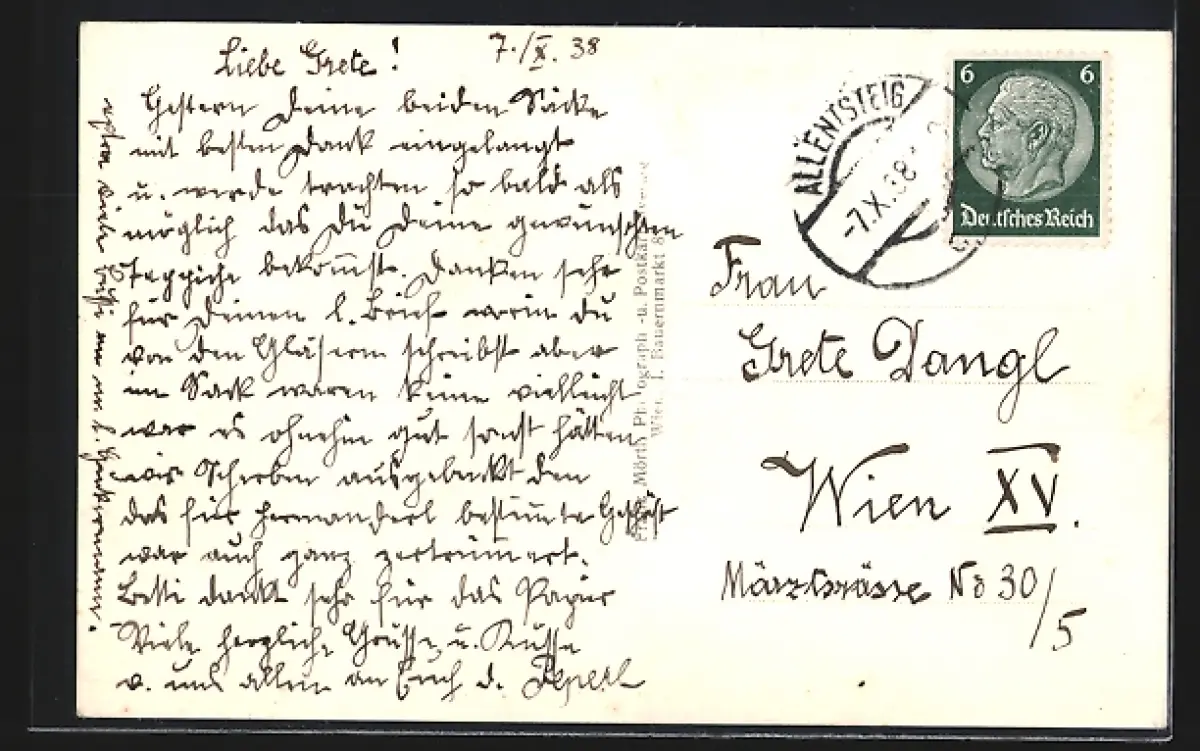 7./X. 38
Liebe Grete!
Gestern Deine beiden Säcke
mit besten Dank eingelangt
u. werde trachten so bald als
möglich das Du Deine gewünschten
Teppiche bekommst. Danken sehr
für Deinen l. Brief worin Du
von den Gläsern schreibst aber
im Sack waren keine vielleicht
war es ohnehin gut sonst hätten
wir Scherben ausgebeukt den
das für Hermanderl bestimte Geschäft
war auch ganz zertrümert.
Betti dankt sehr für das Papier
Viele herzliche Grüsse u. Küsse
v. uns allen an Euch d. Peperl
viele
ALLENTSTEIG
-7.X.38
6 6
Deutsches Reich
Mörth, Photograph -u. Postkar
Wien, I. Bauernmarkt 8
Frau
Grete Dangl
Wien XV.
Märzstrasse No 30/5